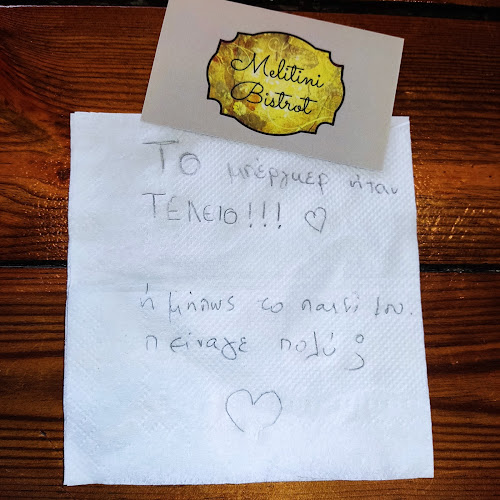 Melitini
Bistrot
ΤΟ μπέργκερ ήταν
ΤΕΛΕΙΟ!!! ♡
ή μήπως το παιδί μου
πείναγε πολύ ;
♡